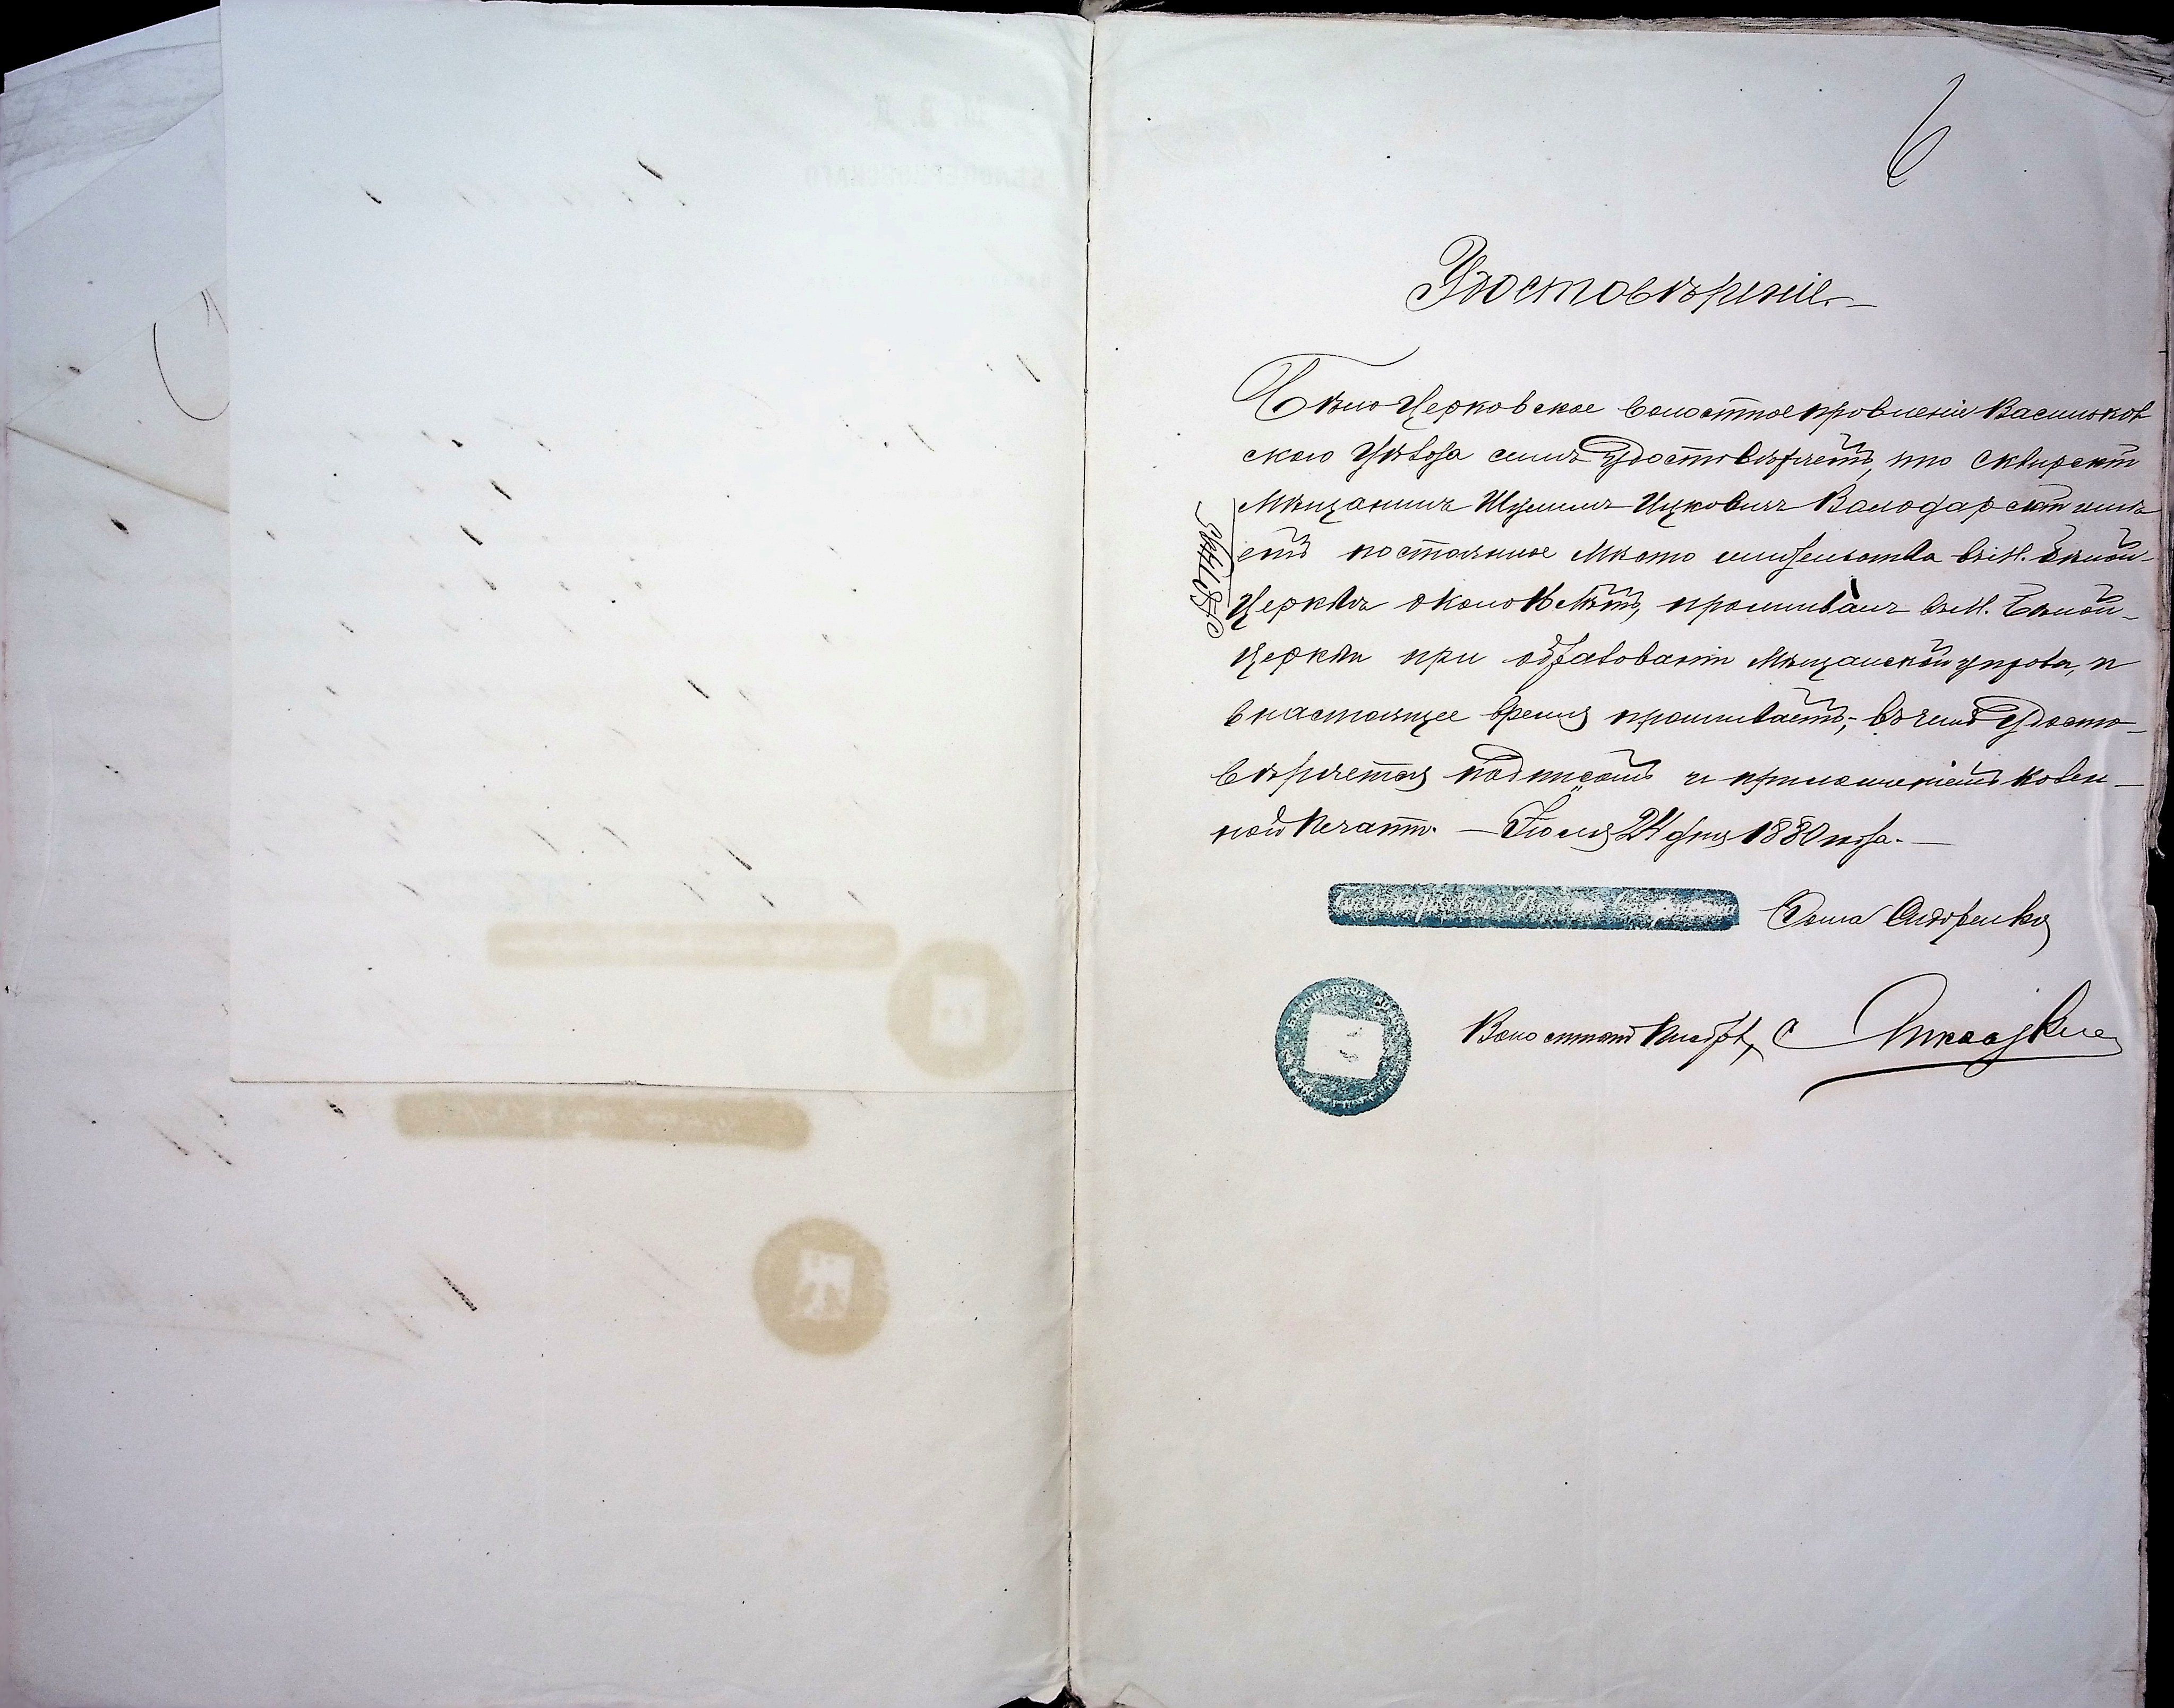 6
Удостовѣреніе.
БѣлоЦерковское волостное правленіе Васильков
скаго Уѣзда симъ удостовѣряетъ, что Сквирскій
Мѣщанинъ Шулимъ Ицковичъ Володарскій имѣ
етъ постоянное Мѣсто жительства въ М. Бѣлой
Церквѣ около лѣтъ, проживалъ въ М. Бѣлой
Церкви при образованіи Мѣщанской управы, и
в настоящее время проживаетъ, въ чемъ Удосто
вѣряется подписомъ и приложеніемъ казен
ной Печати. Іюля 24 дня 1880 года.
Фома Сидоренко
Волостной Писарь